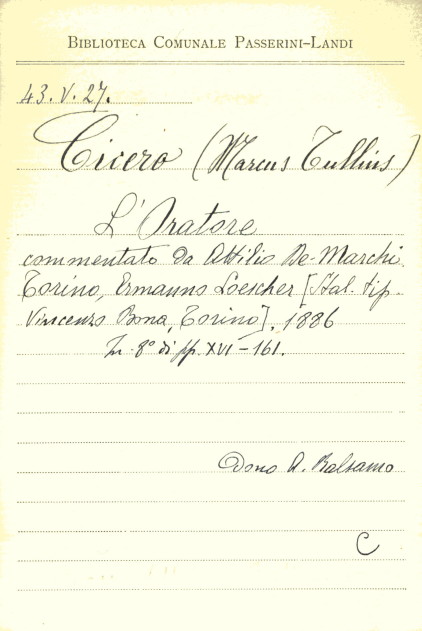 BIBLIOTECA COMUNALE PASSERINI-LANDI
43.V.27.
Cicero (Marcus Tullius)
L'Oratore
commentato da Attilio De-Marchi.
Torino, Ermanno Loescher [Stab. tip.
Vincenzo Bona, Torino], 1886
In-8° di pp. XVI-161.
Dono A. Balsamo
C